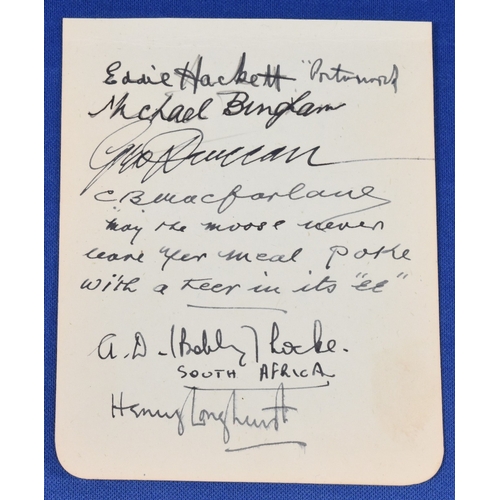 Eddie Hackett "Portmarnock
Michael Bingham
Geo Duncan
C B Macfarlane
"May the moose never
leave yer meal poke
with a teer in its "ee"
A.D. (Bobby) Locke.
SOUTH AFRICA
Henry Longhurst